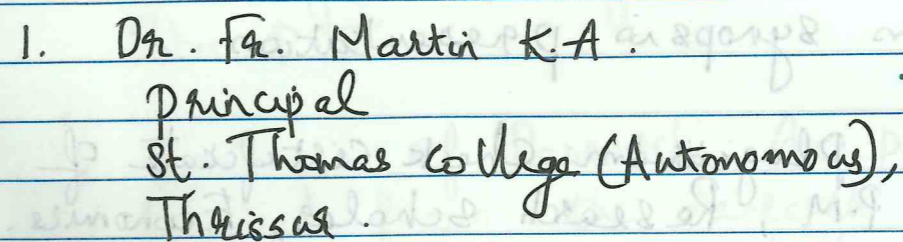 1. Dr. Fr. Martin K.A.
Principal
St. Thomas College (Autonomous),
Thrissur.